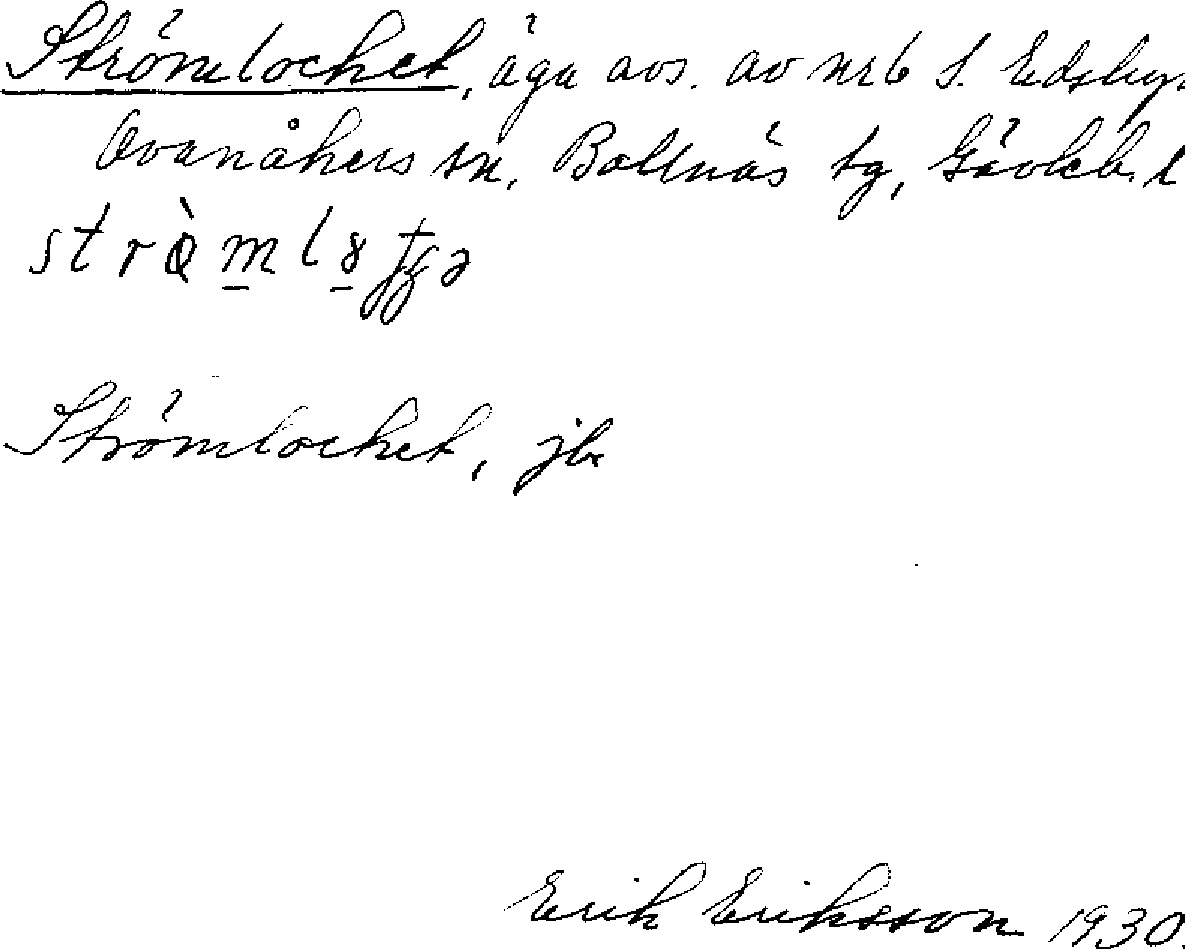 Strömlocket, äga avs. av nr 6 S. Edsbyn
Ovanåkers sn, Bollnäs tg, Gävleb. l
Strömlocket, jbr
Erik Eriksson 1930.